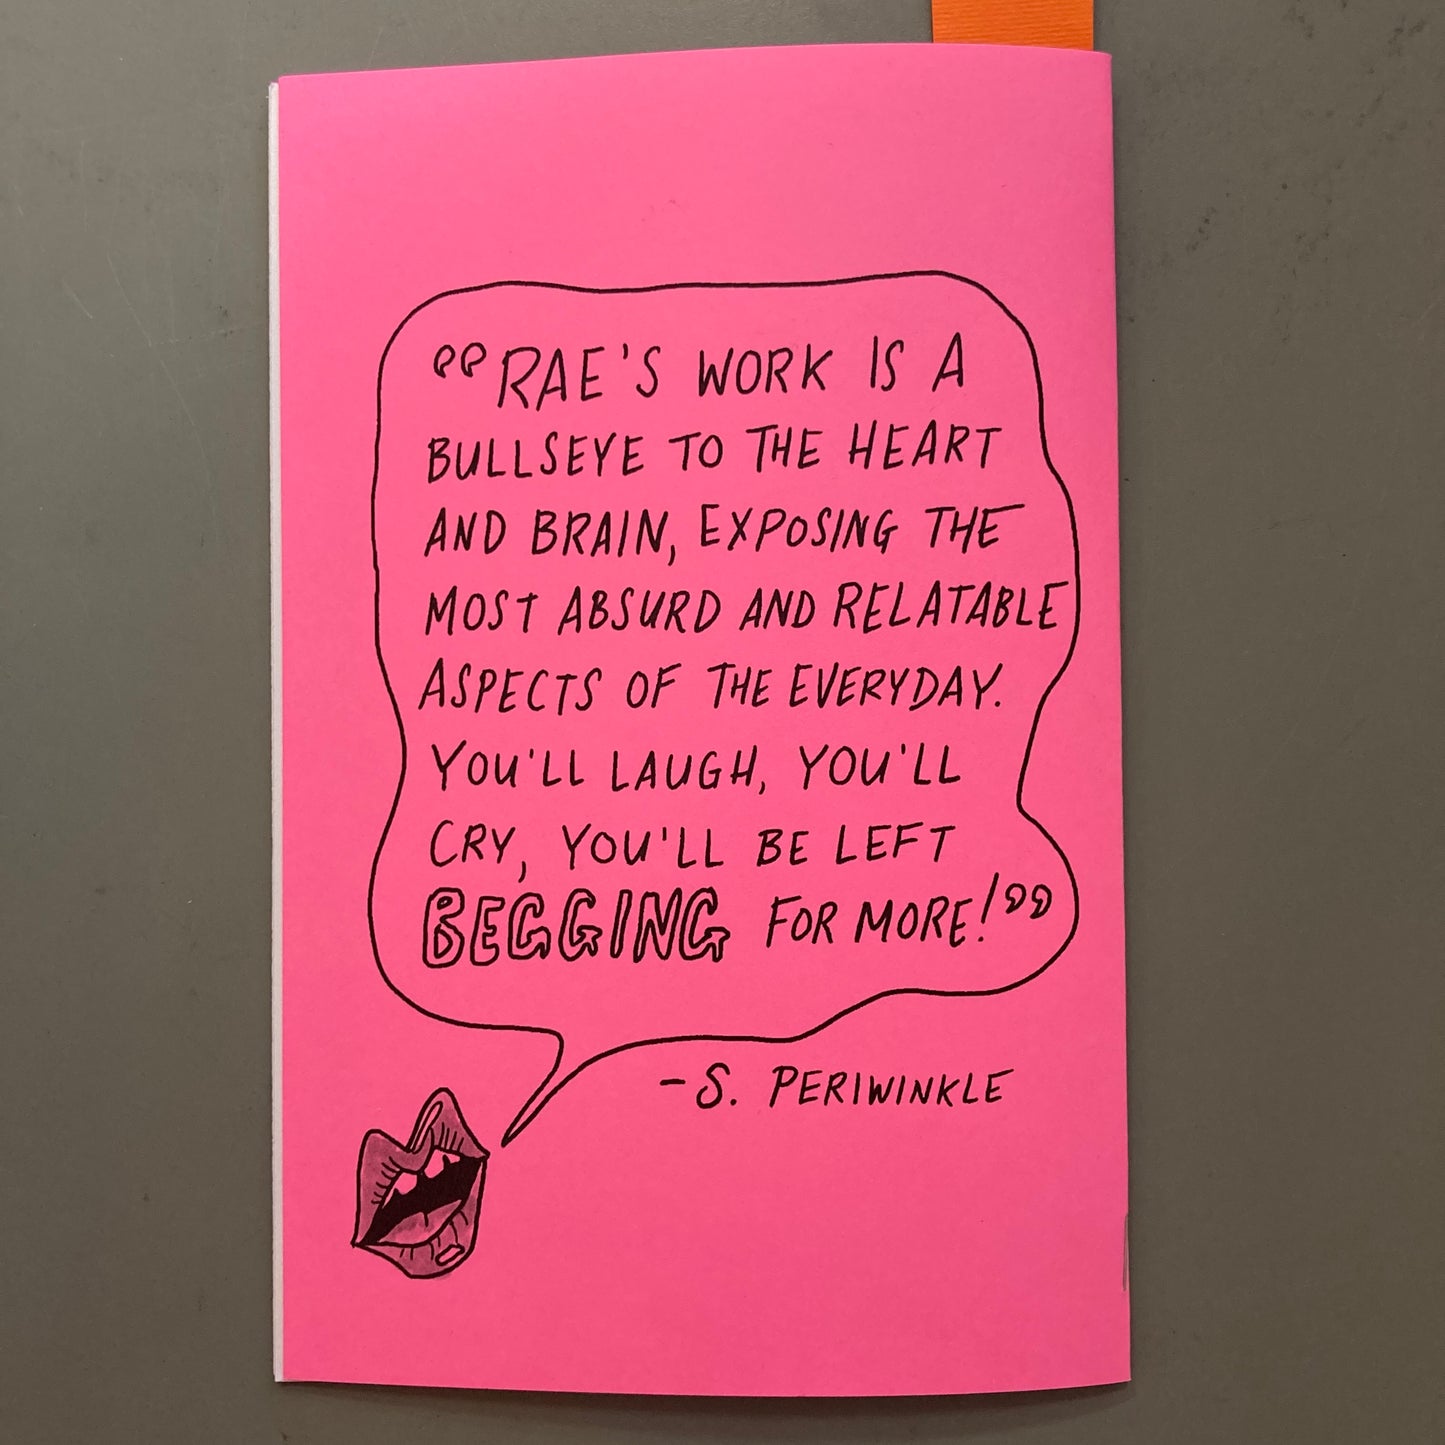 “RAE'S WORK IS A
BULLSEYE TO THE HEART
AND BRAIN, EXPOSING THE
MOST ABSURD AND RELATABLE
ASPECTS OF THE EVERYDAY.
YOU'LL LAUGH, YOU'LL
CRY, YOU'LL BE LEFT
BEGGING FOR MORE!”
-S. PERIWINKLE